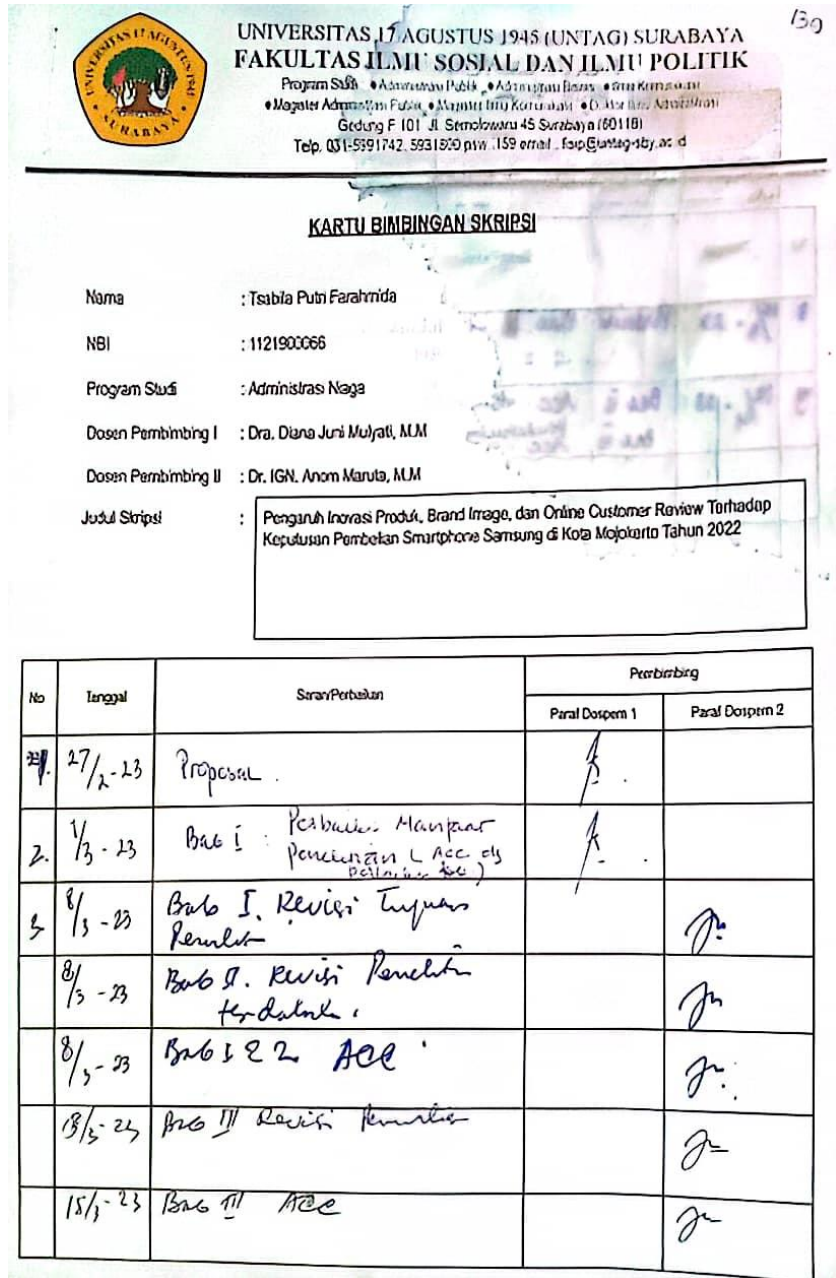 139
UNIVERSITAS 17 AGUSTUS 1945
SURABAYA
UNIVERSITAS 17 AGUSTUS 1945 (UNTAG) SURABAYA
FAKULTAS ILMU SOSIAL DAN ILMU POLITIK
Program Studi • Administrasi Publik • Administrasi Bisnis • Ilmu Komunikasi
• Magister Administrasi Publik • Magister Ilmu Komunikasi • Doktor Ilmu Administrasi
Gedung F 101 Jl. Semolowaru 45 Surabaya (60118)
Telp. 031-5991742, 5931800 psw. 159 email :
KARTU BIMBINGAN SKRIPSI
Nama : Tsabila Putri Farahmida
NBI : 1121900066
Program Studi : Administrasi Niaga
Dosen Pembimbing I : Dra. Diana Juni Mulyati, M.M
Dosen Pembimbing II : Dr. IGN. Anom Maruta, M.M
Judul Skripsi : Pengaruh Inovasi Produk, Brand Image, dan Online Customer Review Terhadap
Keputusan Pembelian Smartphone Samsung di Kota Mojokerto Tahun 2022
Pembimbing
No Tanggal Saran/Perbaikan Paraf Dospem 1 Paraf Dospem 2
27/2-23 Proposal.
2. 1/3-23 Bab I : Perbaiki Manfaat
Penelitian
3 8/3-23 Bab I. Revisi Tujuan
Penelitian
8/3-23 Bab II. Revisi Penelitian
terdahulu.
8/3-23 Bab I & 2 ACC
Bab III Revisi
15/3-23 Bab III ACC